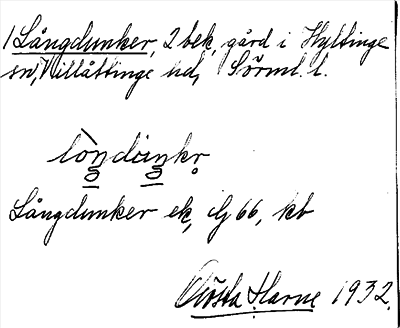 1 Långdunker, 2 bek, gård i Hyltinge
sn, Villåttinge hd, Sörml. l.
Långdunker ek, Gj 66, kb
Gösta Harne 1932.